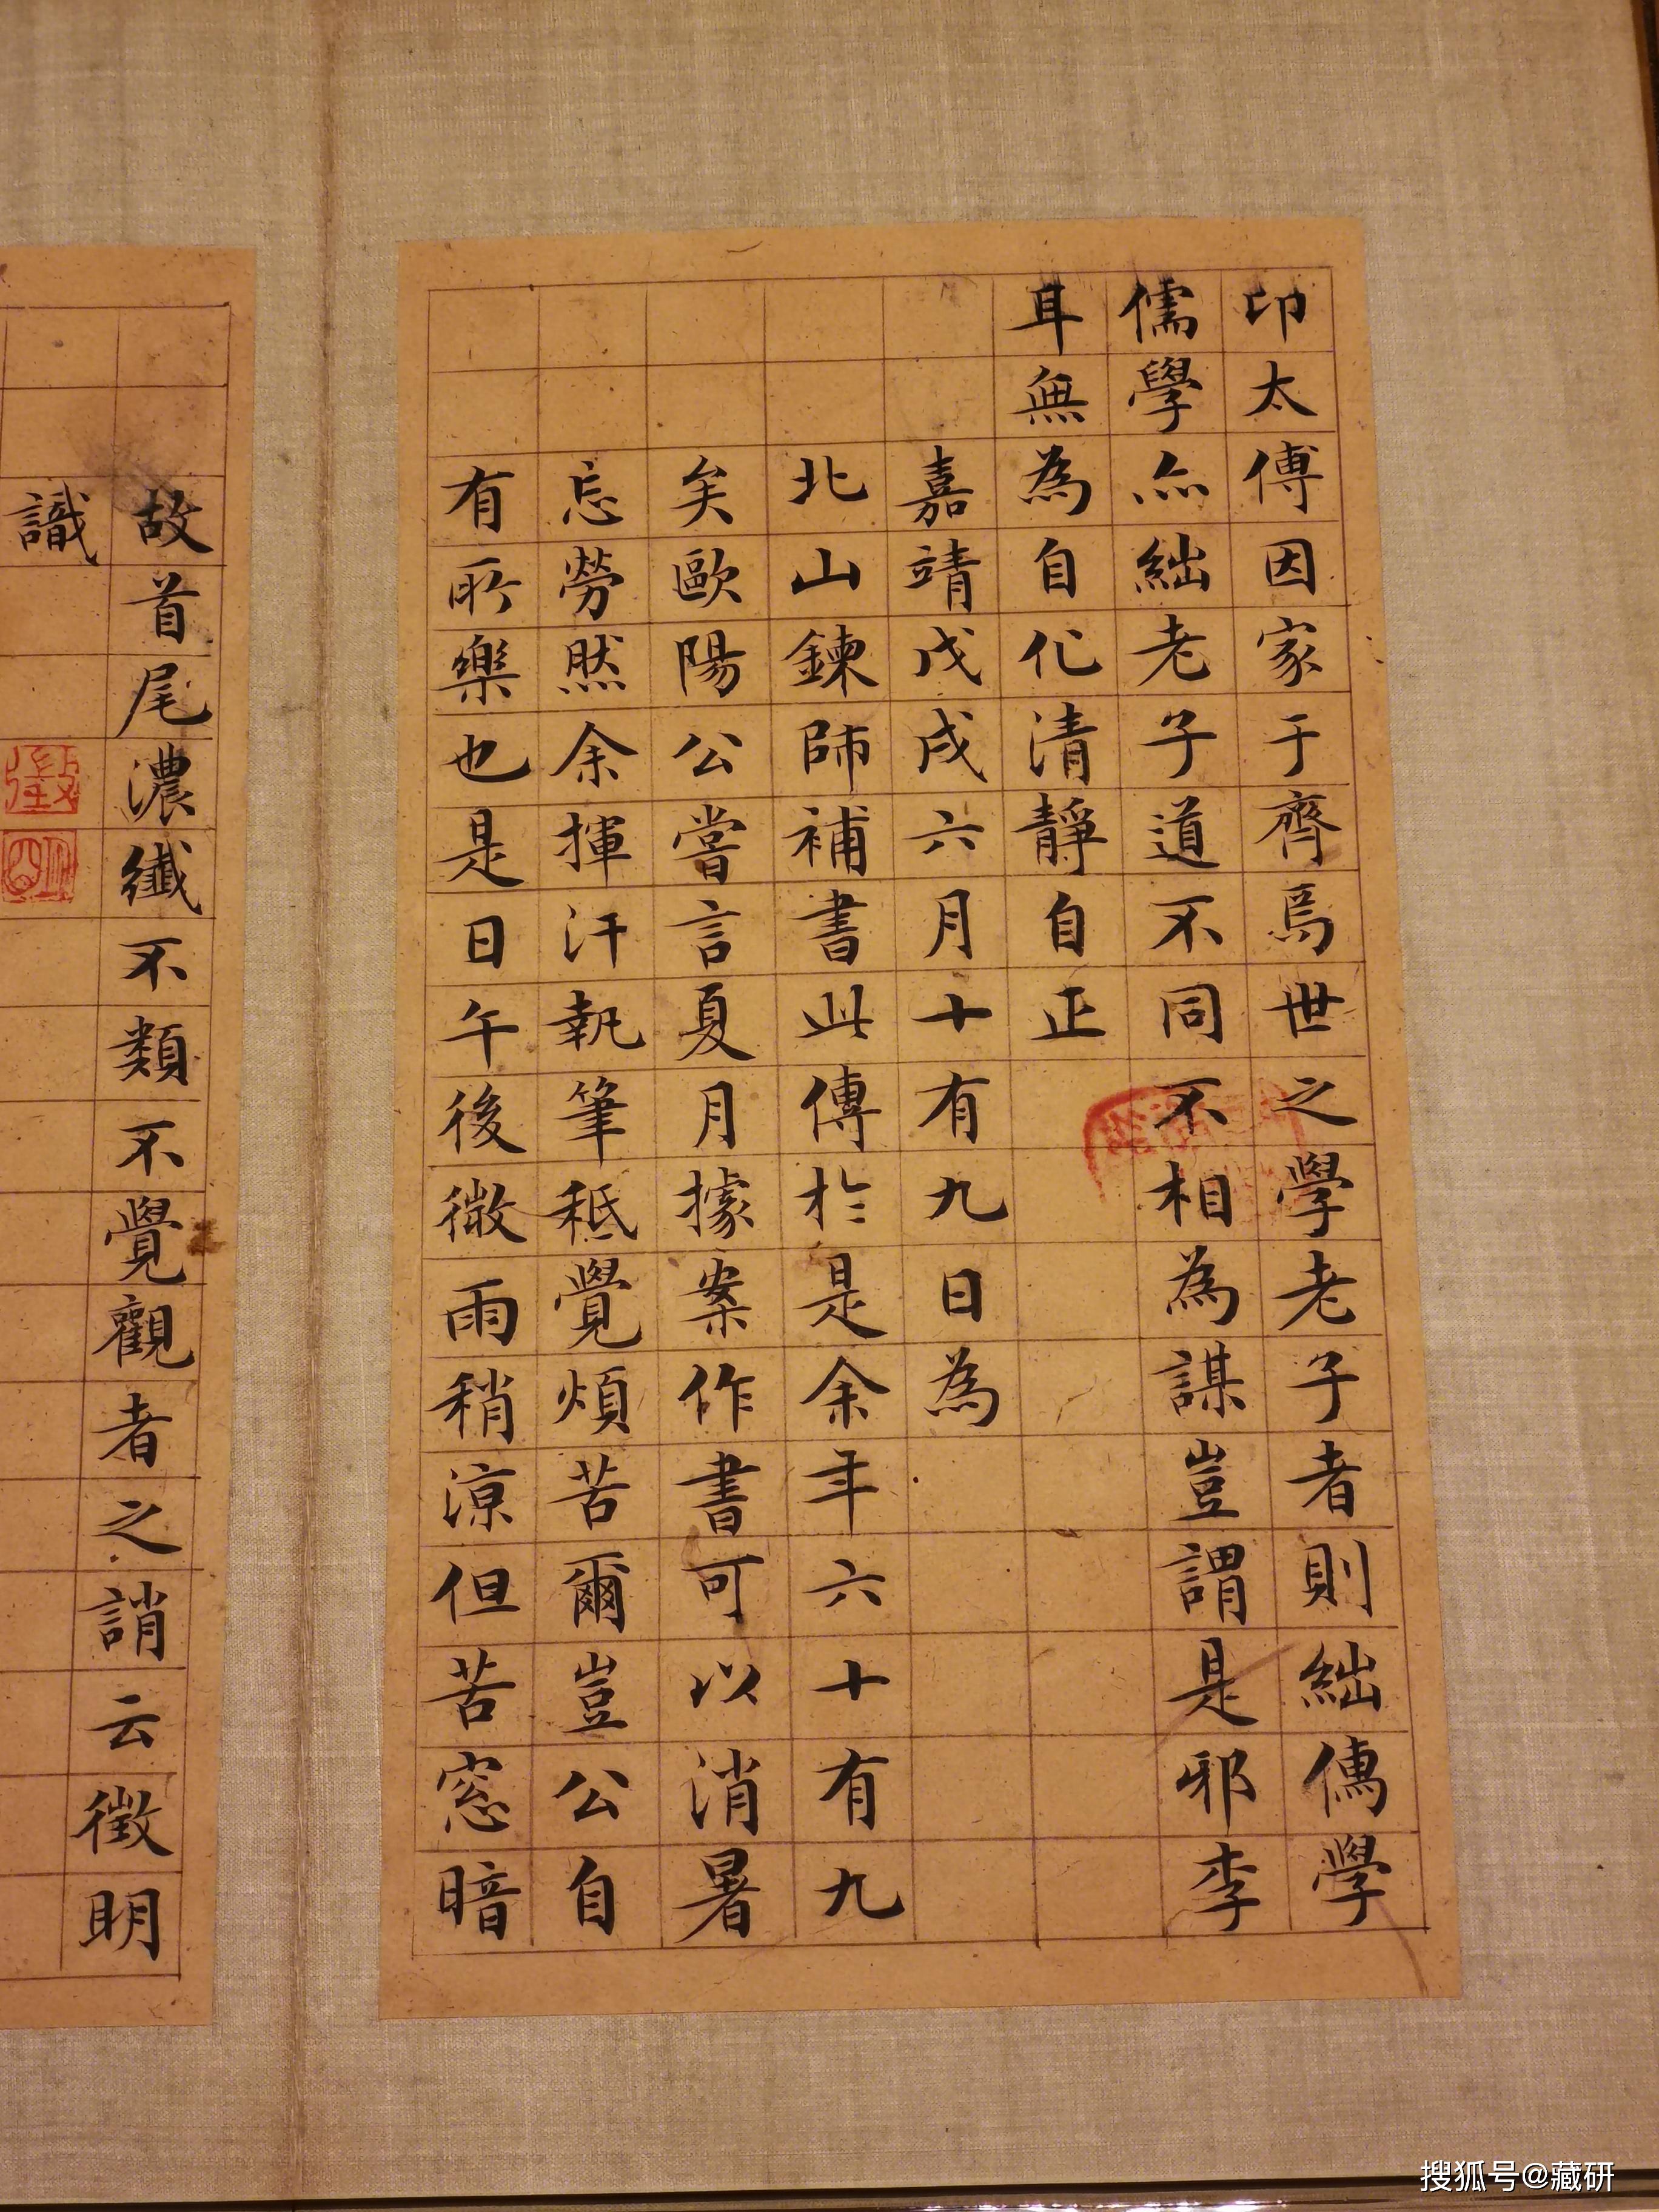 卬太傅因家于齊焉世之學老子者則絀儒學
儒學亦絀老子道不同不相為謀豈謂是邪李
耳無為自化清靜自正
嘉靖戊戌六月十有九日為
北山鍊師補書此傳於是余年六十有九
矣歐陽公嘗言夏月據案作書可以消暑
忘勞然余揮汗執筆秖覺煩苦爾豈公自
有所樂也是日午後微雨稍涼但苦窓暗
故首尾濃纖不類不覺觀者之誚云徵明
識
搜狐号@藏研